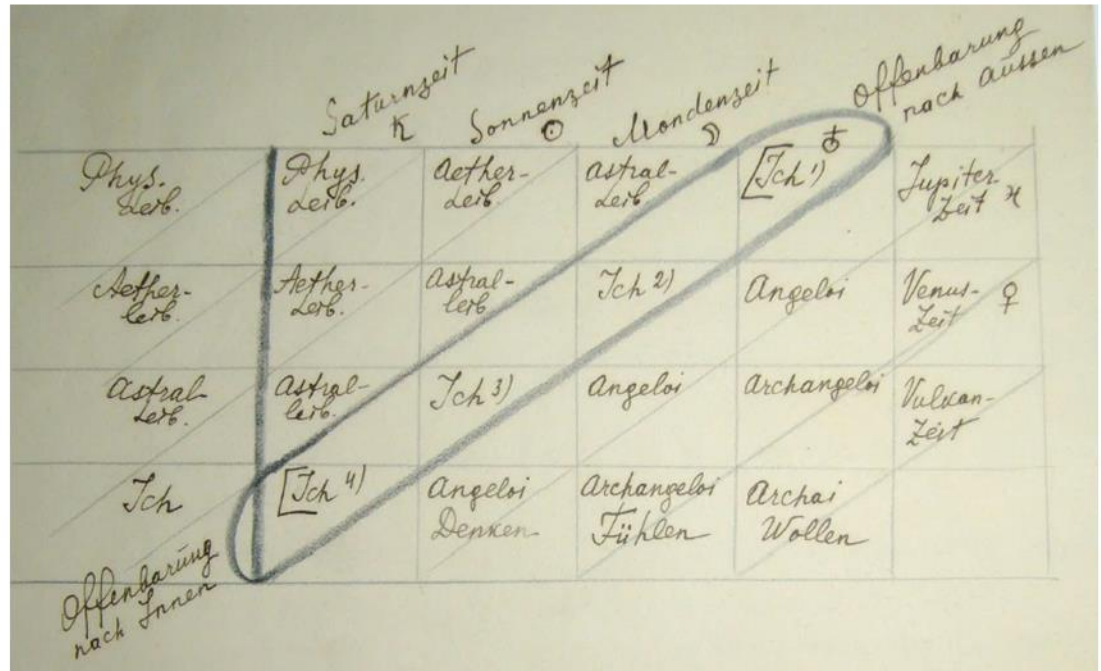 Saturnzeit
♄
Sonnenzeit
☉
Mondenzeit
☽
Offenbarung
nach Aussen
♁
Phys.
Leib.
Phys.
Leib.
Aether-
Leib.
Astral-
Leib.
[Ich 1)
Jupiter-
Zeit ♃
Aether-
leib.
Aether-
Leib.
Astral-
leib
Ich 2)
Angeloi
Venus-
Zeit ♀
Astral-
Leib.
Astral-
leib.
Ich 3)
Angeloi
Archangeloi
Vulcan-
Zeit
Ich
[Ich 4)
Angeloi
Denken
Archangeloi
Fühlen
Archai
Wollen
Offenbarung
nach Innen